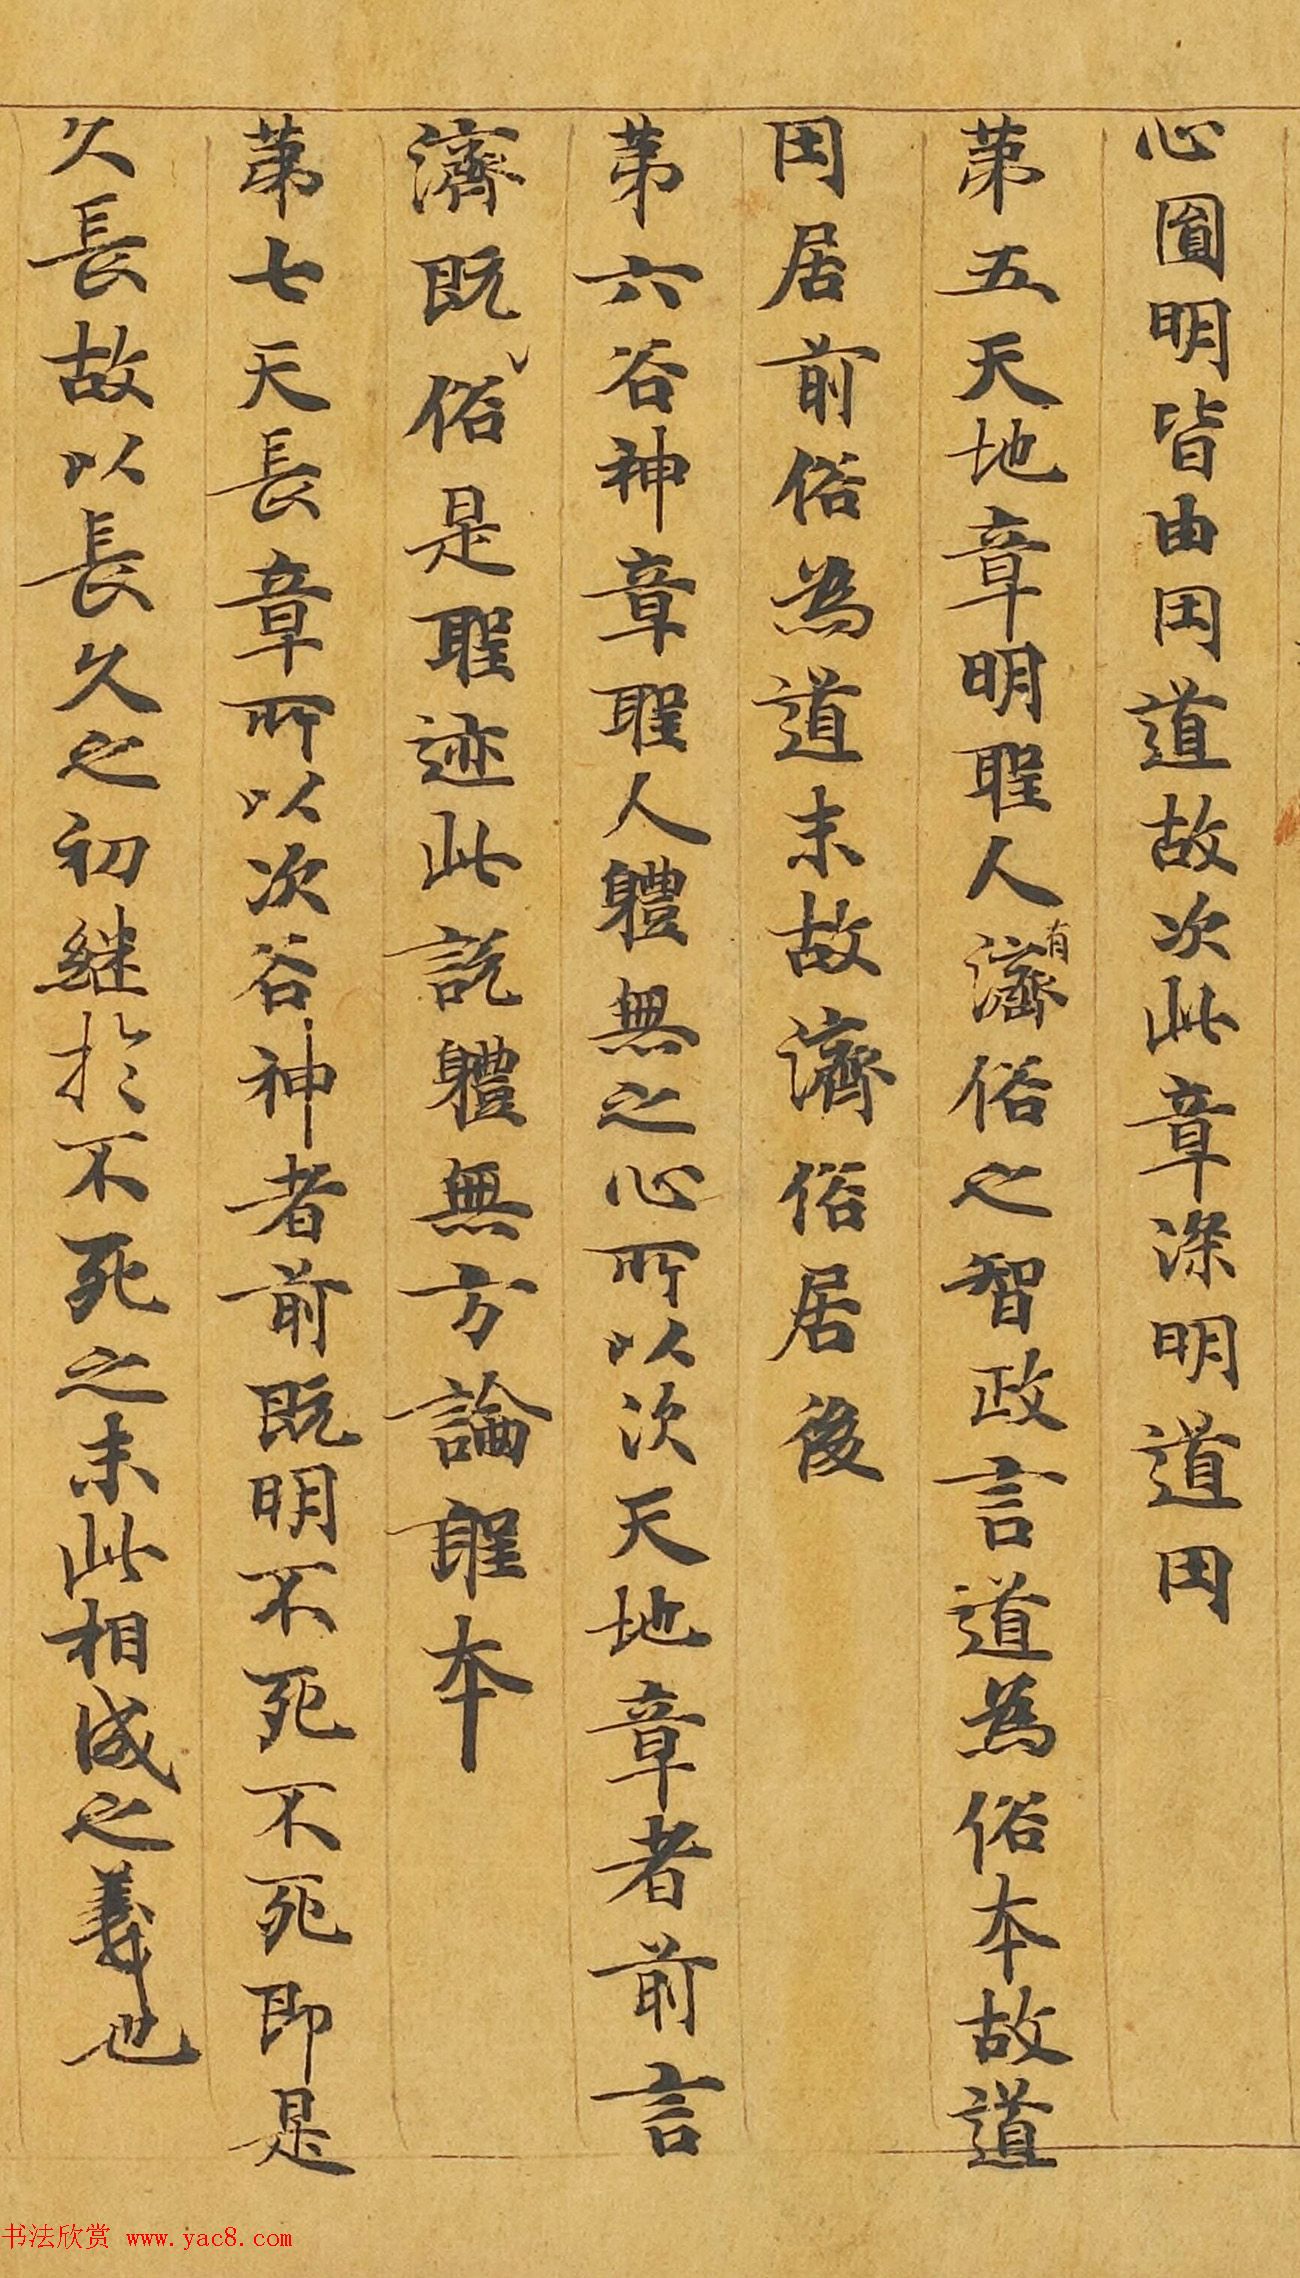 心圓明皆由因道故次此章深明道因
苐五天地章明聖人有濟俗之智政言道為俗本故道
因居前俗為道末故濟俗居後
苐六谷神章聖人軆無之心所以次天地章者前言
濟既俗是聖迹此說軆無方論聖本
苐七天長章所以次谷神者前既明不死不死即是
久長故以長久之初継於不死之末此相成之義也
书法欣赏 www.yac8.com